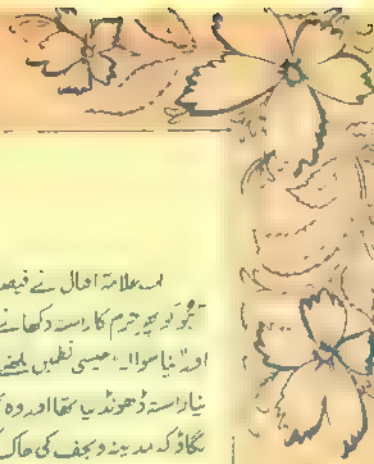 اب علامہ اقبال نے فیصد
آہو کو پھر حرم کا راستہ دکھانے
اور نیا سوالہ جیسی نظمیں لکھنے
نیا راستہ ڈھونڈ لیا تھا اور وہ
لگاؤ کہ مدینہ و نجف کی خاک